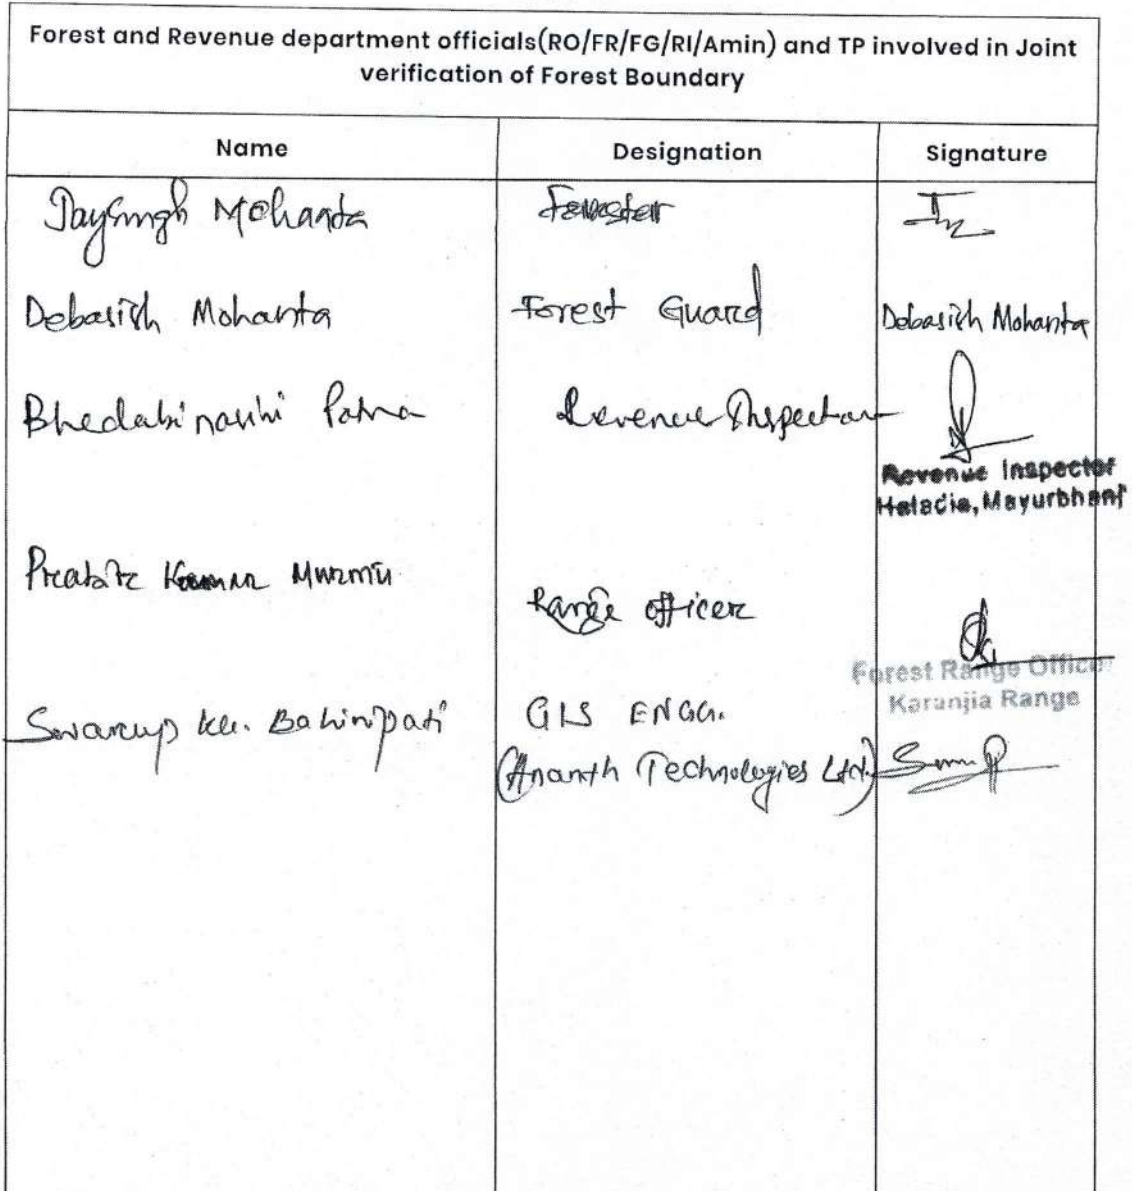 Forest and Revenue department officials(RO/FR/FG/RI/Amin) and TP involved in Joint
verification of Forest Boundary
Name Designation Signature
Jaysingh Mohanta Forester
Debasish Mohanta Forest Guard Debasish Mohanta
Revenue Inspector
Revenue Inspector
Mayurbhanj
Murmu
Range Officer
Forest Range Officer
Karanjia Range
Swarup Ku. Bahinipati GIS ENGG.
(Ananth Technologies Ltd.)